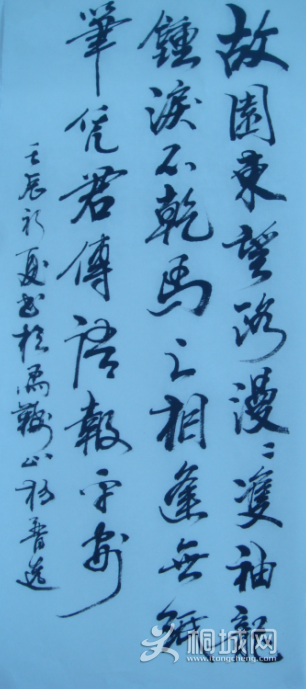 故園東望路漫〻雙袖龍
鍾淚不乾馬上相逢無紙
筆凭君傳語報平安
壬辰初夏书於馬鞍山
桐城网
itongcheng.com